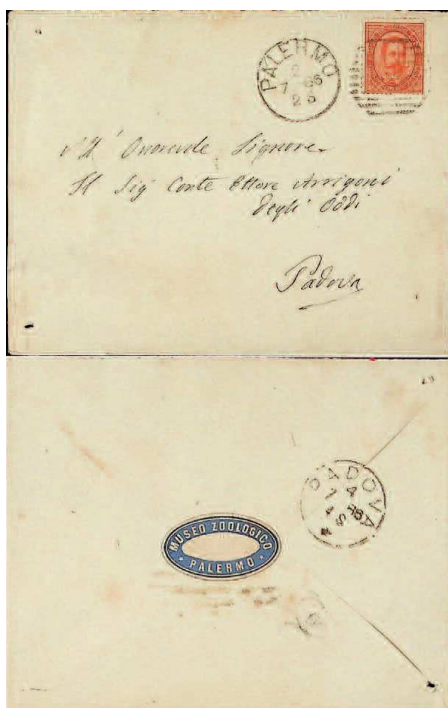 PALERMO
2
7 86
2 S
All' Onorevole Signore
Il Sig Conte Ettore Arrigoni
degli Oddi
Padova
PADOVA
4
7 86
4 S
MUSEO ZOOLOGICO
PALERMO